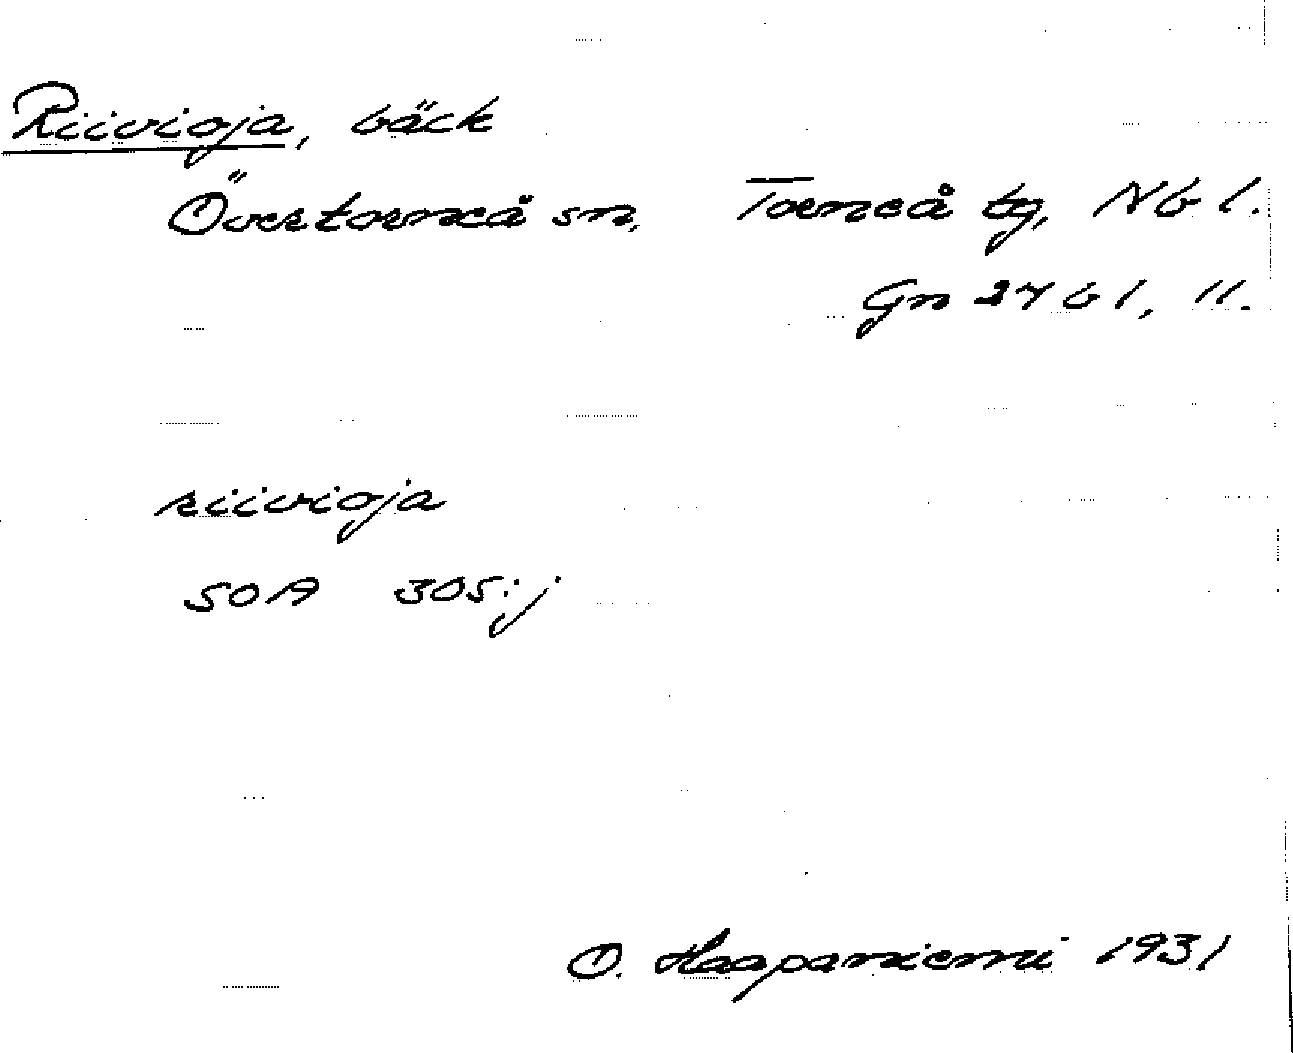 Riivioja, bäck
Övertorneå sn, Torneå tg, Nb l.
Gn 24 b 1, 11.
riivioja
SOA 305:j
O. Haapaniemi 1931